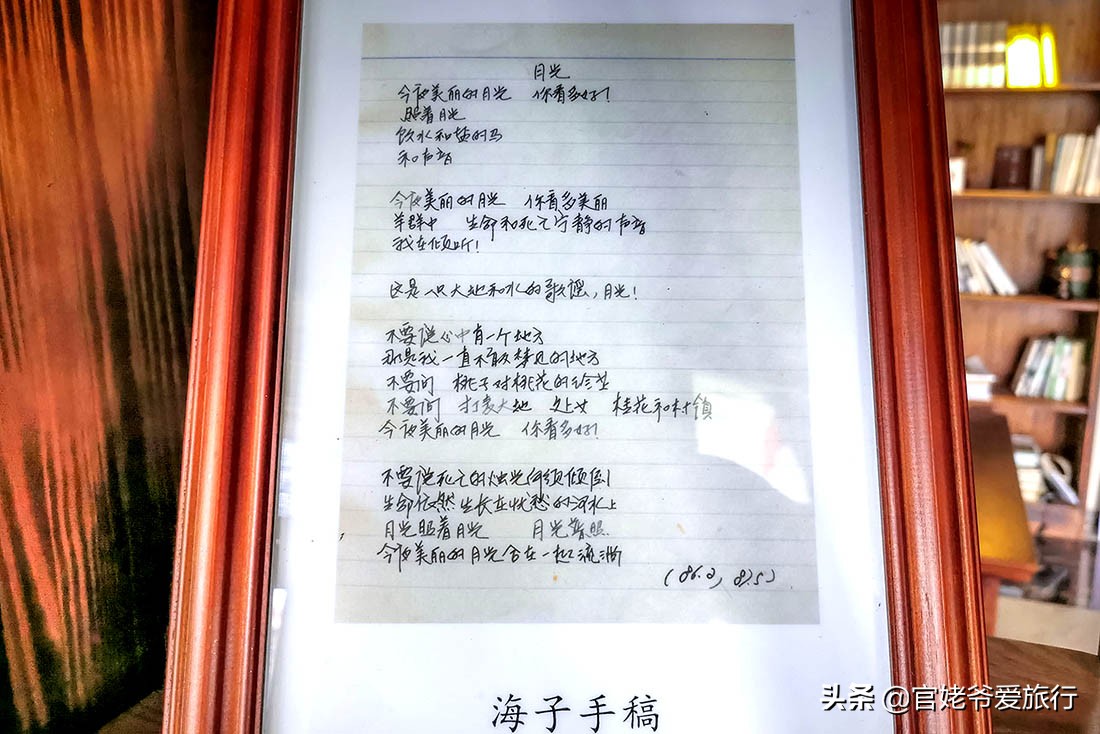 月光
今夜美丽的月光 你看多好!
照着月光
饮水和盐的马
和声音
今夜美丽的月光 你看多美丽
羊群中 生命和死亡宁静的声音
我在倾听!
这是一只大地和水的歌谣,月光!
不要说心中有一个地方
那是我一直不敢梦见的地方
不要问 桃子对桃花的珍藏
不要问 打麦大地 处女 桂花和村镇
今夜美丽的月光 你看多好!
不要说死亡的烛光何须倾倒
生命依然生长在忧愁的河水上
月光照着月光 月光普照
今夜美丽的月光合在一起流淌
(86.2, 87.5)
海子手稿
头条 @官姥爷爱旅行